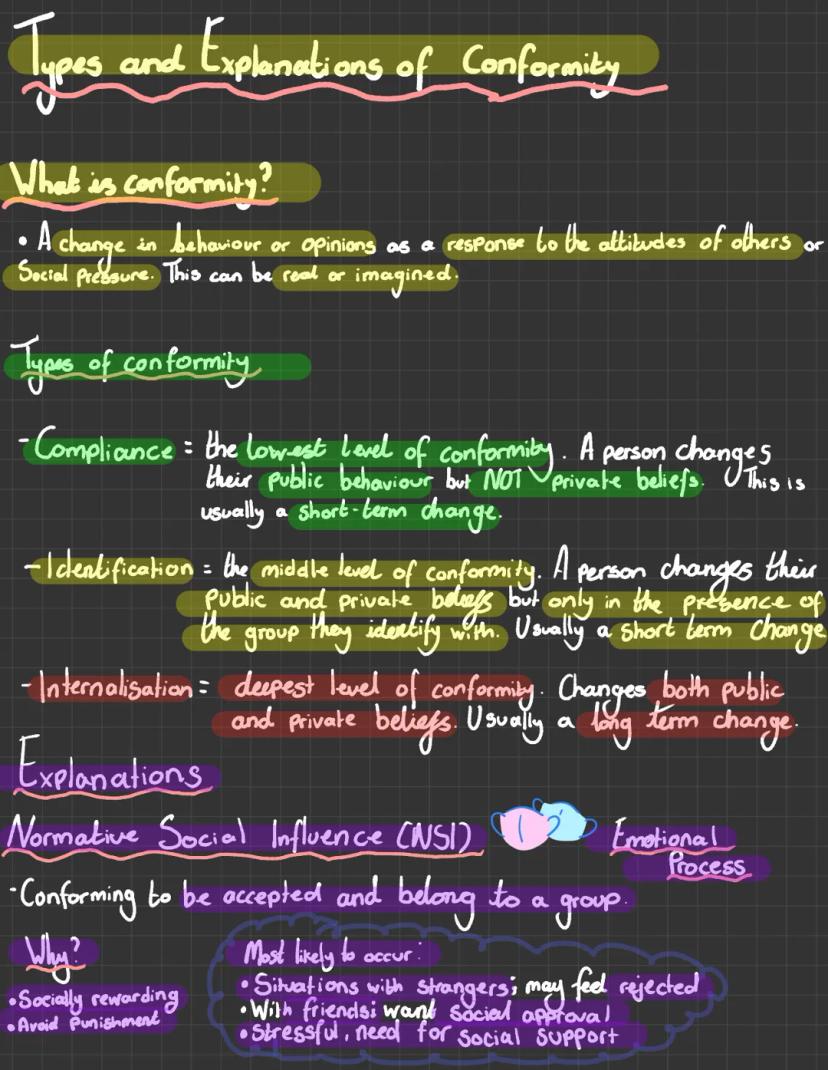 Types and Explanations of Conformity
What is conformity?
• A change in behaviour or opinions as a response to the attitudes of others or
Social Pressure. This can be real or imagined.
Types of conformity
- Compliance = the lowest level of conformity. A person changes
their public behaviour but NOT private beliefs. This is
usually a short-term change.
- Identification = the middle level of conformity. A person changes their
public and private beliefs but only in the presence of
the group they identify with. Usually a short term change
- Internalisation = deepest level of conformity. Changes both public
and private beliefs. Usually a long term change.
Explanations
Normative Social Influence (NSI)
Emotional
Process
- Conforming to be accepted and belong to a group.
Why?
• Socially rewarding
• Avoid Punishment
Most likely to occur:
• Situations with strangers; may feel rejected
• With friends; want social approval
• Stressful, need for social support